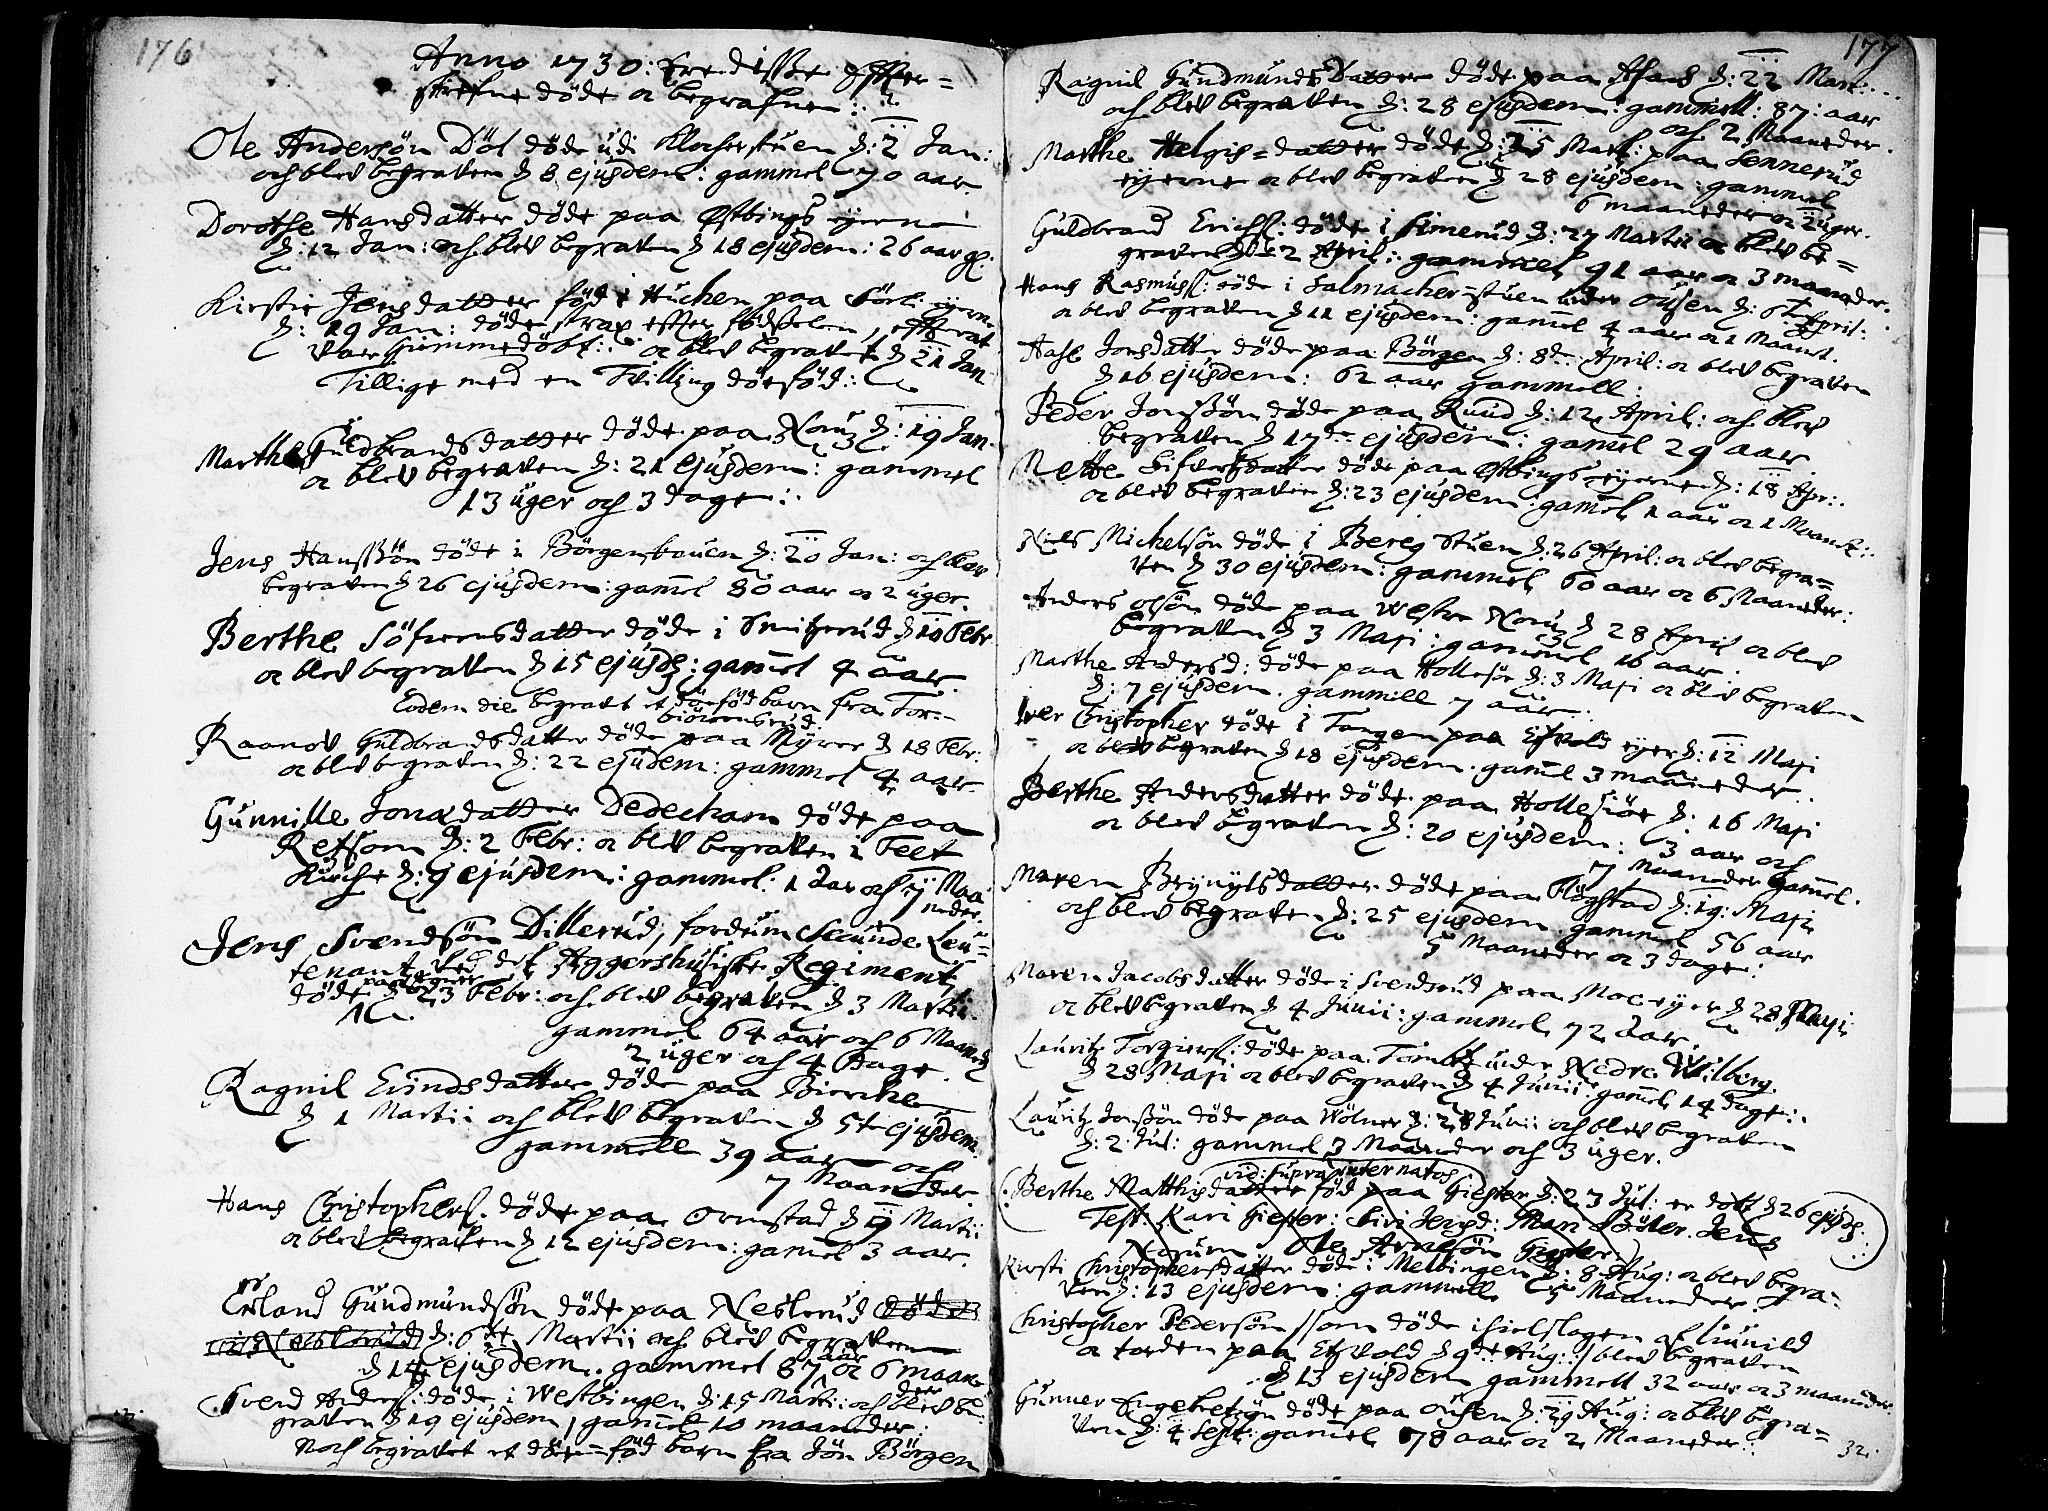 176
Anno 1730: ere disse Efter=
skrefne døde oc begrafne:
Ole Andersön Döl döde udi Klocherstuen d: 2 Jan:
och blev begraven d 8 ejusdem: gammel 70 aar
Dorothe Hansdatter döde paa Østbings eyerne
d: 12 Jan: och blev begraven d 18 ejusdem: 26 aar gl:
Kirstie Jensdatter föd i Huchen paa eyern.
d: 19 Jan: döde strax efter födselen, efter at
vaar hiemmedöbt: oc blev begravet d 21 Jan
Tillige med en Tvilling dörföd:
Marthe Guldbrandsdatter döde paa Norum d: 19 Jan.
oc blev begraven d: 21 ejusdem: gammel
13 uger och 3 dage:
Jens Hanssön döde i Börgerstauen d: 20 Jan: och blev
begraven d 26 ejusdem: gamel 80 aar oc 2 uger.
Berthe Söfrensdatter döde i Smiherud d 10 Febr
oc blev begraven d 15 ejusd: gamel 4 aar.
Eodem die begravt et dörföd barn fra Tor=
biörnsrud
Raanov Guldbrandsdatter döde paa Myrer d 18 Febr:
oc blev begraven d: 22 ejudem: gammel 4 aar
Gunnille Jonædatter Dedecham döde paa
Retsom d: 2 Febr: oc blev begraven i Feet
Kirche d: 9 ejusdem: gammel: 1 aar och 7 Maa
neder.
Jens Svendsön Dillerud, fordum Secunde Leu=
tenant ved det Aggershusiske Regiment,
döde d 23 Febr: och blev begraven d 3 Martii
gammel 64 aar och 6 Maaned
2 uger och 4 Dage.
Ragnil Evindsdatter döde paa Bierche
d 1 Martii och blev begraven d 5te ejusdem.
gammell 39 aar och
7 Maaneder
Hans Christophers. döde paa Ormstad d 9 Martii
oc blev begraven d 12 ejusdem: gamel 3 aar.
Erland Gundmundsön döde paa Neslerud
d: 6te Martii och blev begraven
d 14 ejusdem. gammel 87 aar oc 6 maan=
der
Svend Anders: döde i Westbingen d: 15 Marti: och blev be=
graven d 19 ejusdem, gamel 10 maaneder:
Noch begravet et dör=föd barn fra Jön Börgen
177
Ragnil Gundmundsdatter döde paa Asach d: 22 Mart:
och blev begraven d: 28 ejusdem: gammell: 87: aar
och 2 Maaneder.
Marthe Helgis=datter döde d: 25 Mart: paa Sennerud
eyerne oc blev begraven d 28 ejusdem: gammel
6 maaneder oc uger.
Guldbrand Erichs: döde i Simerud d: 27 Martii oc blev be=
graven d: 2 April: gammel 91 aar oc 3 maaneder.
Hans Rasmuss: döde i Salmacher=stuen under Ousen d: 6te April:
oc blev begraven d 11 ejusdem: gamel 4 aar oc 1 Maanet.
Jonsdatter döde paa Börger d: 8de April: oc blev begraven
d 16 ejusdem: 62 aar gammell:
Peder Jonssön döde paa Ruud d: 12 April: och blev
begraven d 17de ejusdem: gamel 29 aar
Mette Sifversdatter döde paa Østbings eyerne d: 18 Apr:
oc blev begraven d: 23 ejusdem: gamel 1 aar oc 1 Maanet:
Niels Michelsön döde i Bereg stuen d: 26 April: oc blev begra=
ven d 30 ejusdem: gammel 60 aar oc 6 Maaneder:
Anders olsön döde paa Westre Norum d 28 April oc blev
begraven d 3 Maji: gammel 16 aar
Marthe Andersd: döde paa Hollesiöe d: 3 Maji oc blev begraven
d: 7 ejusdem. gammell 7 aar:
Iver Christopher döde i Tangen paa Eyer d: 12 Maji
oc blev begraven d 18 ejusdem. gamel 3 maaneder:
Berthe Andersdatter döde paa Hollesiöe d: 16 Maji
oc blev begraven d: 20 ejusdem: 3 aar och
7 Maaneder gamel.
Maren Brynylsdatter döde paa Högstad d: 19: Maji
och blev begraven d: 25 ejusdem gammel 56 aar
5 Maaneder oc 3 dage:
Maren Jacobsdatter döde i Svendsrud paa Moe eyer d 28 Maji
oc blev begraven d 4 Junii: gammel 72 aar.
Lauritz Torgiers: döde paa under Nedre Wilberg
d 28 Maji oc blev begraven d 4 Junii: gamel 14 dage:
Lauritz Jonssön döde paa Wölner d: 28 Junii och blev begraven
d: 2. Jul: gammel 3 Maaneder och 3 uger.
vid: supra inter natos
Berthe Matthisdatter föd paa Giester d: 23 Jul: er dött d 26 ejusd:
Test: Kari Giester: Siri Jensd: Mari Böler. Jens
Norum. Ole Arnesön Giester:
Kirsti Christophersdatter döde i Melbingen d: 8 Aug: oc blev begra=
ven d: 13 ejusdem: gammell 5 Maaneder:
Christopher Pedersön som döde ihielslagen af liunild
oc torden paa Etzvold d 9de Aug: blev begraven
d 13 ejusdem gammell 32 aar oc 3 maaneder.
Gunner Engebretzön döde paa Ousen d: 29 Aug: oc blev begra=
ven d: 4 Sept: gamel 78 aar oc 2 Maaneder:
32.